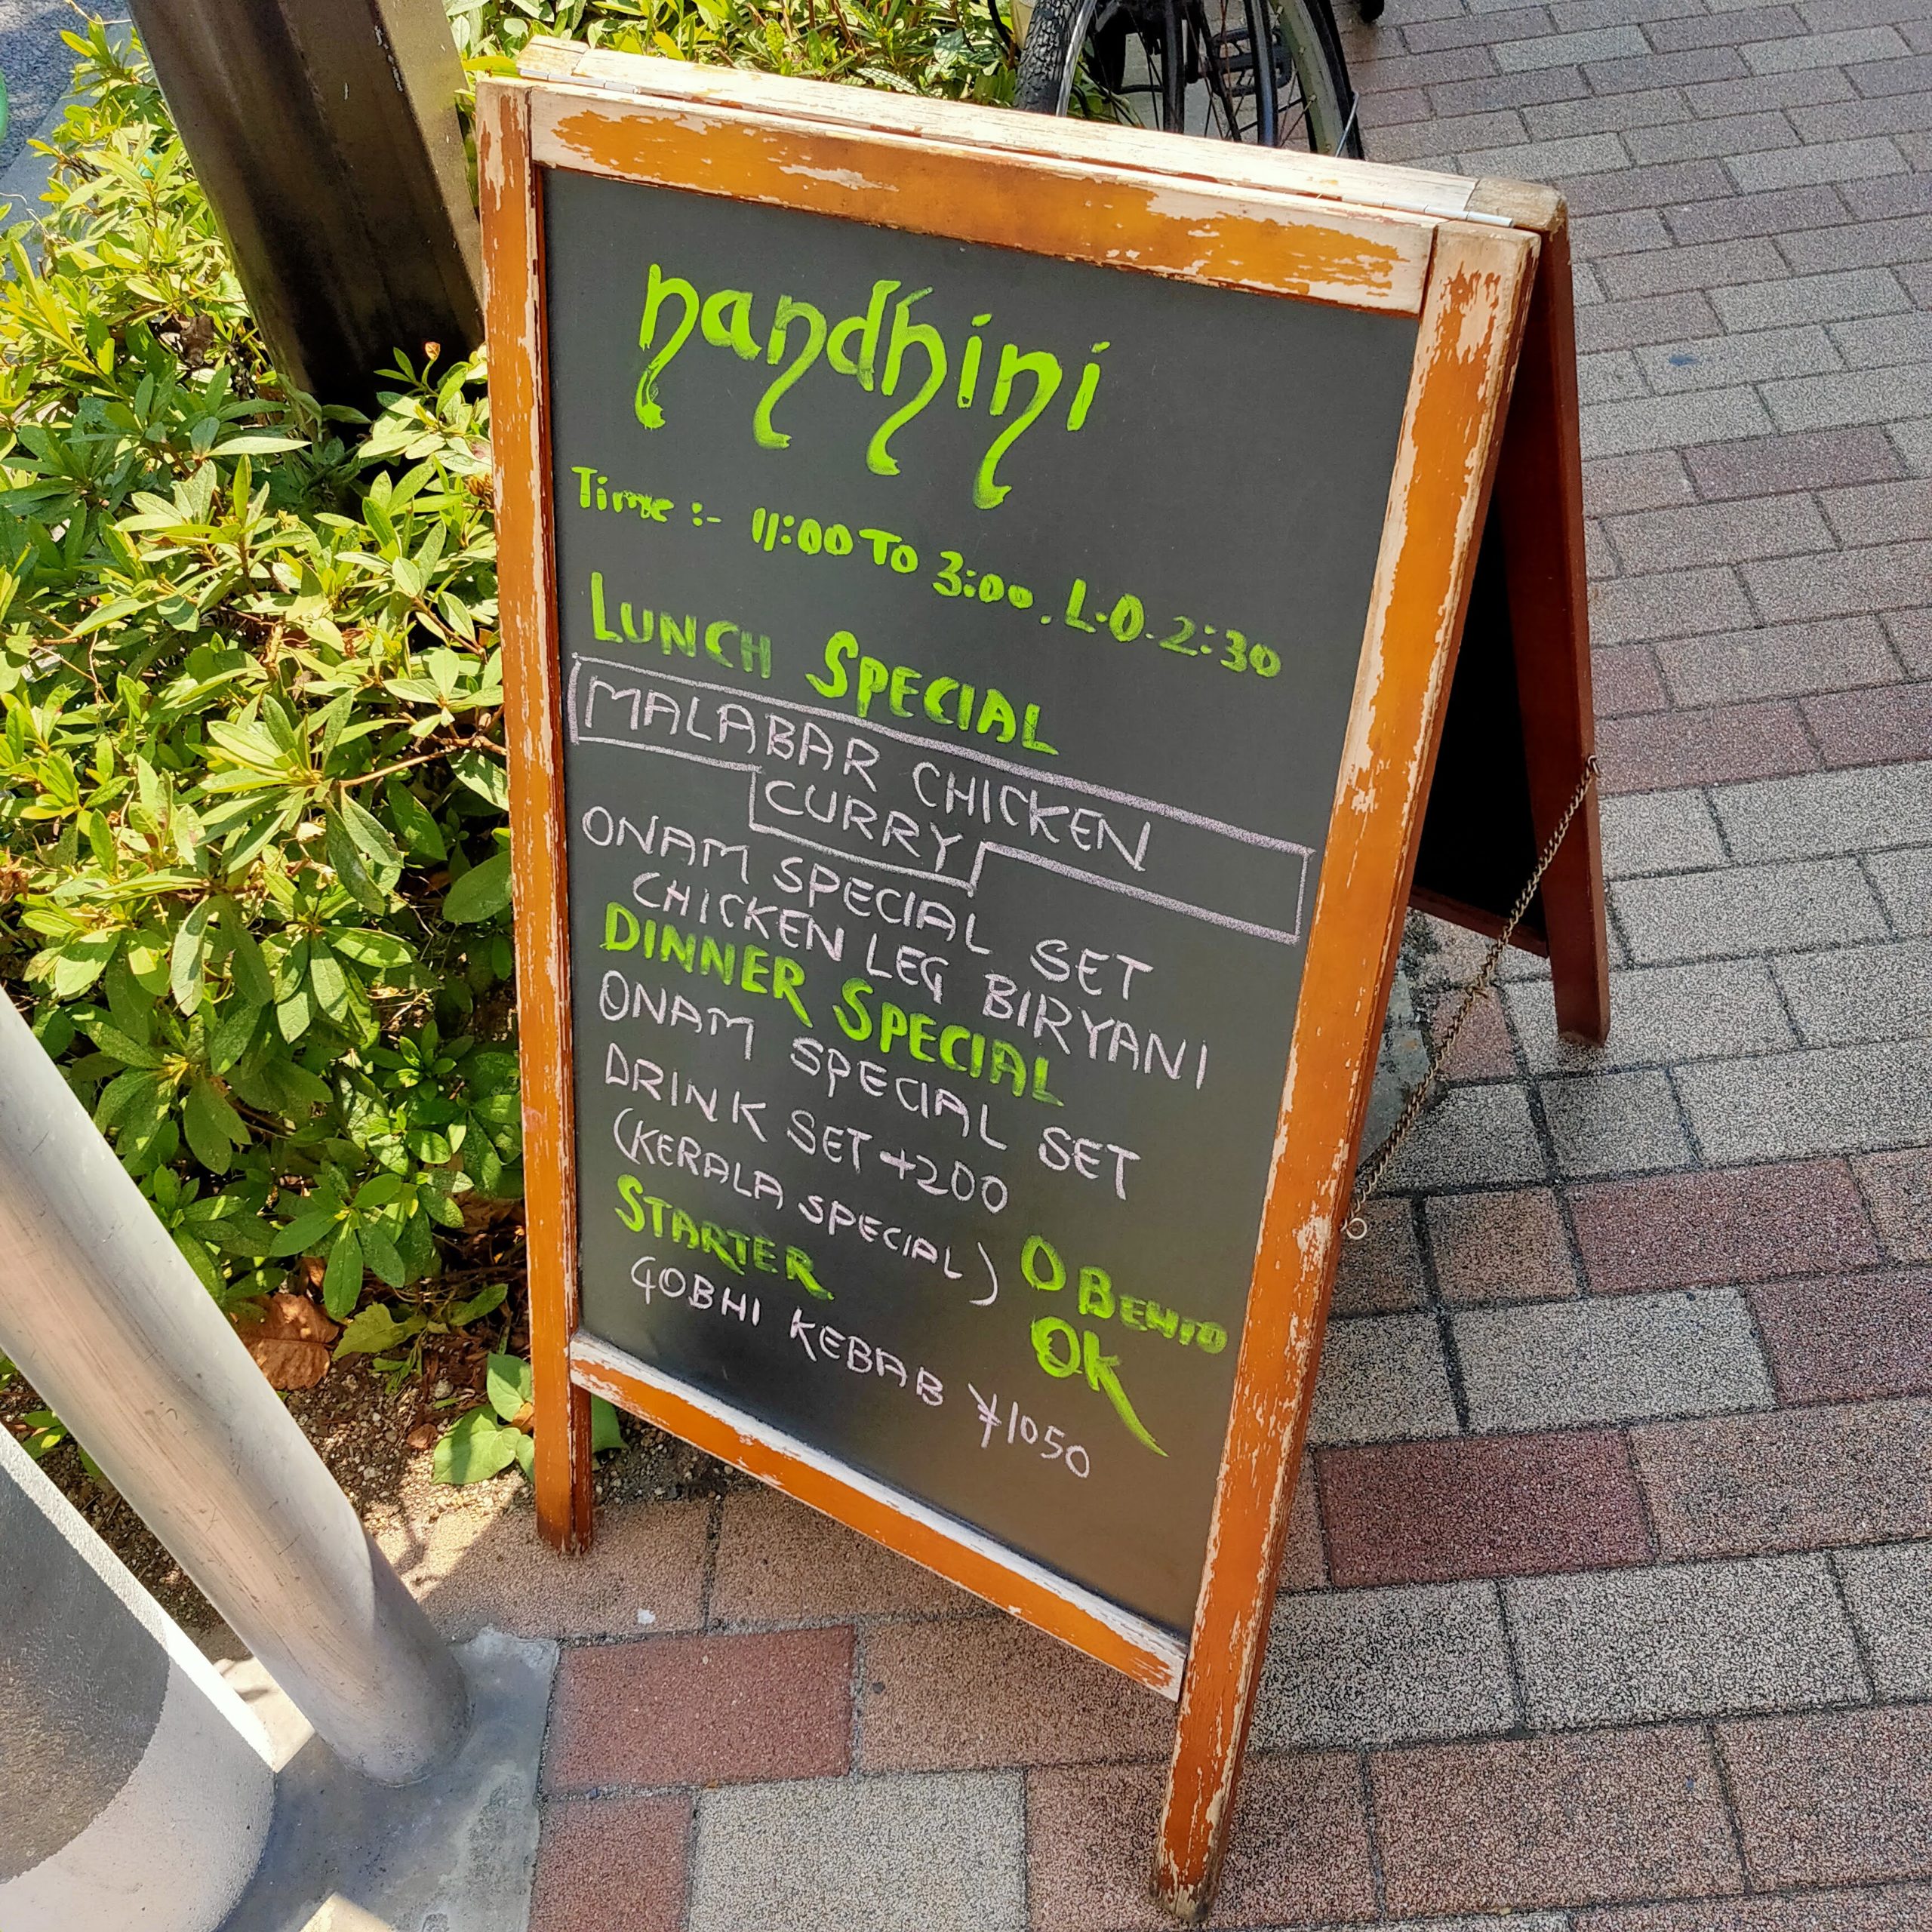 nandhini
Time :- 11:00 TO 3:00. L.O. 2:30
LUNCH SPECIAL
MALABAR CHICKEN
CURRY
ONAM SPECIAL SET
CHICKEN LEG BIRYANI
DINNER SPECIAL
ONAM SPECIAL SET
DRINK SET +200
(KERALA SPECIAL)
STARTER
GOBHI KEBAB ¥1050
O BENTO
OK